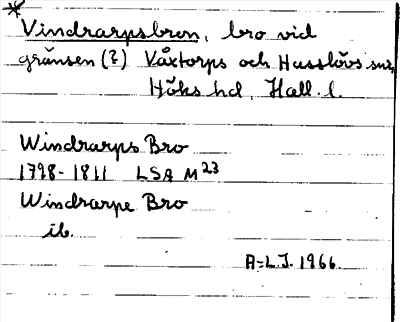 * Vindrarpsbron, bro vid
gränsen (?) Våxtorps och Hasslövs snr,
Höks hd, Hall. l.
Windrarps Bro
1798-1811 LSA M23
Windrarpe Bro
ib.
A=L.J. 1966.